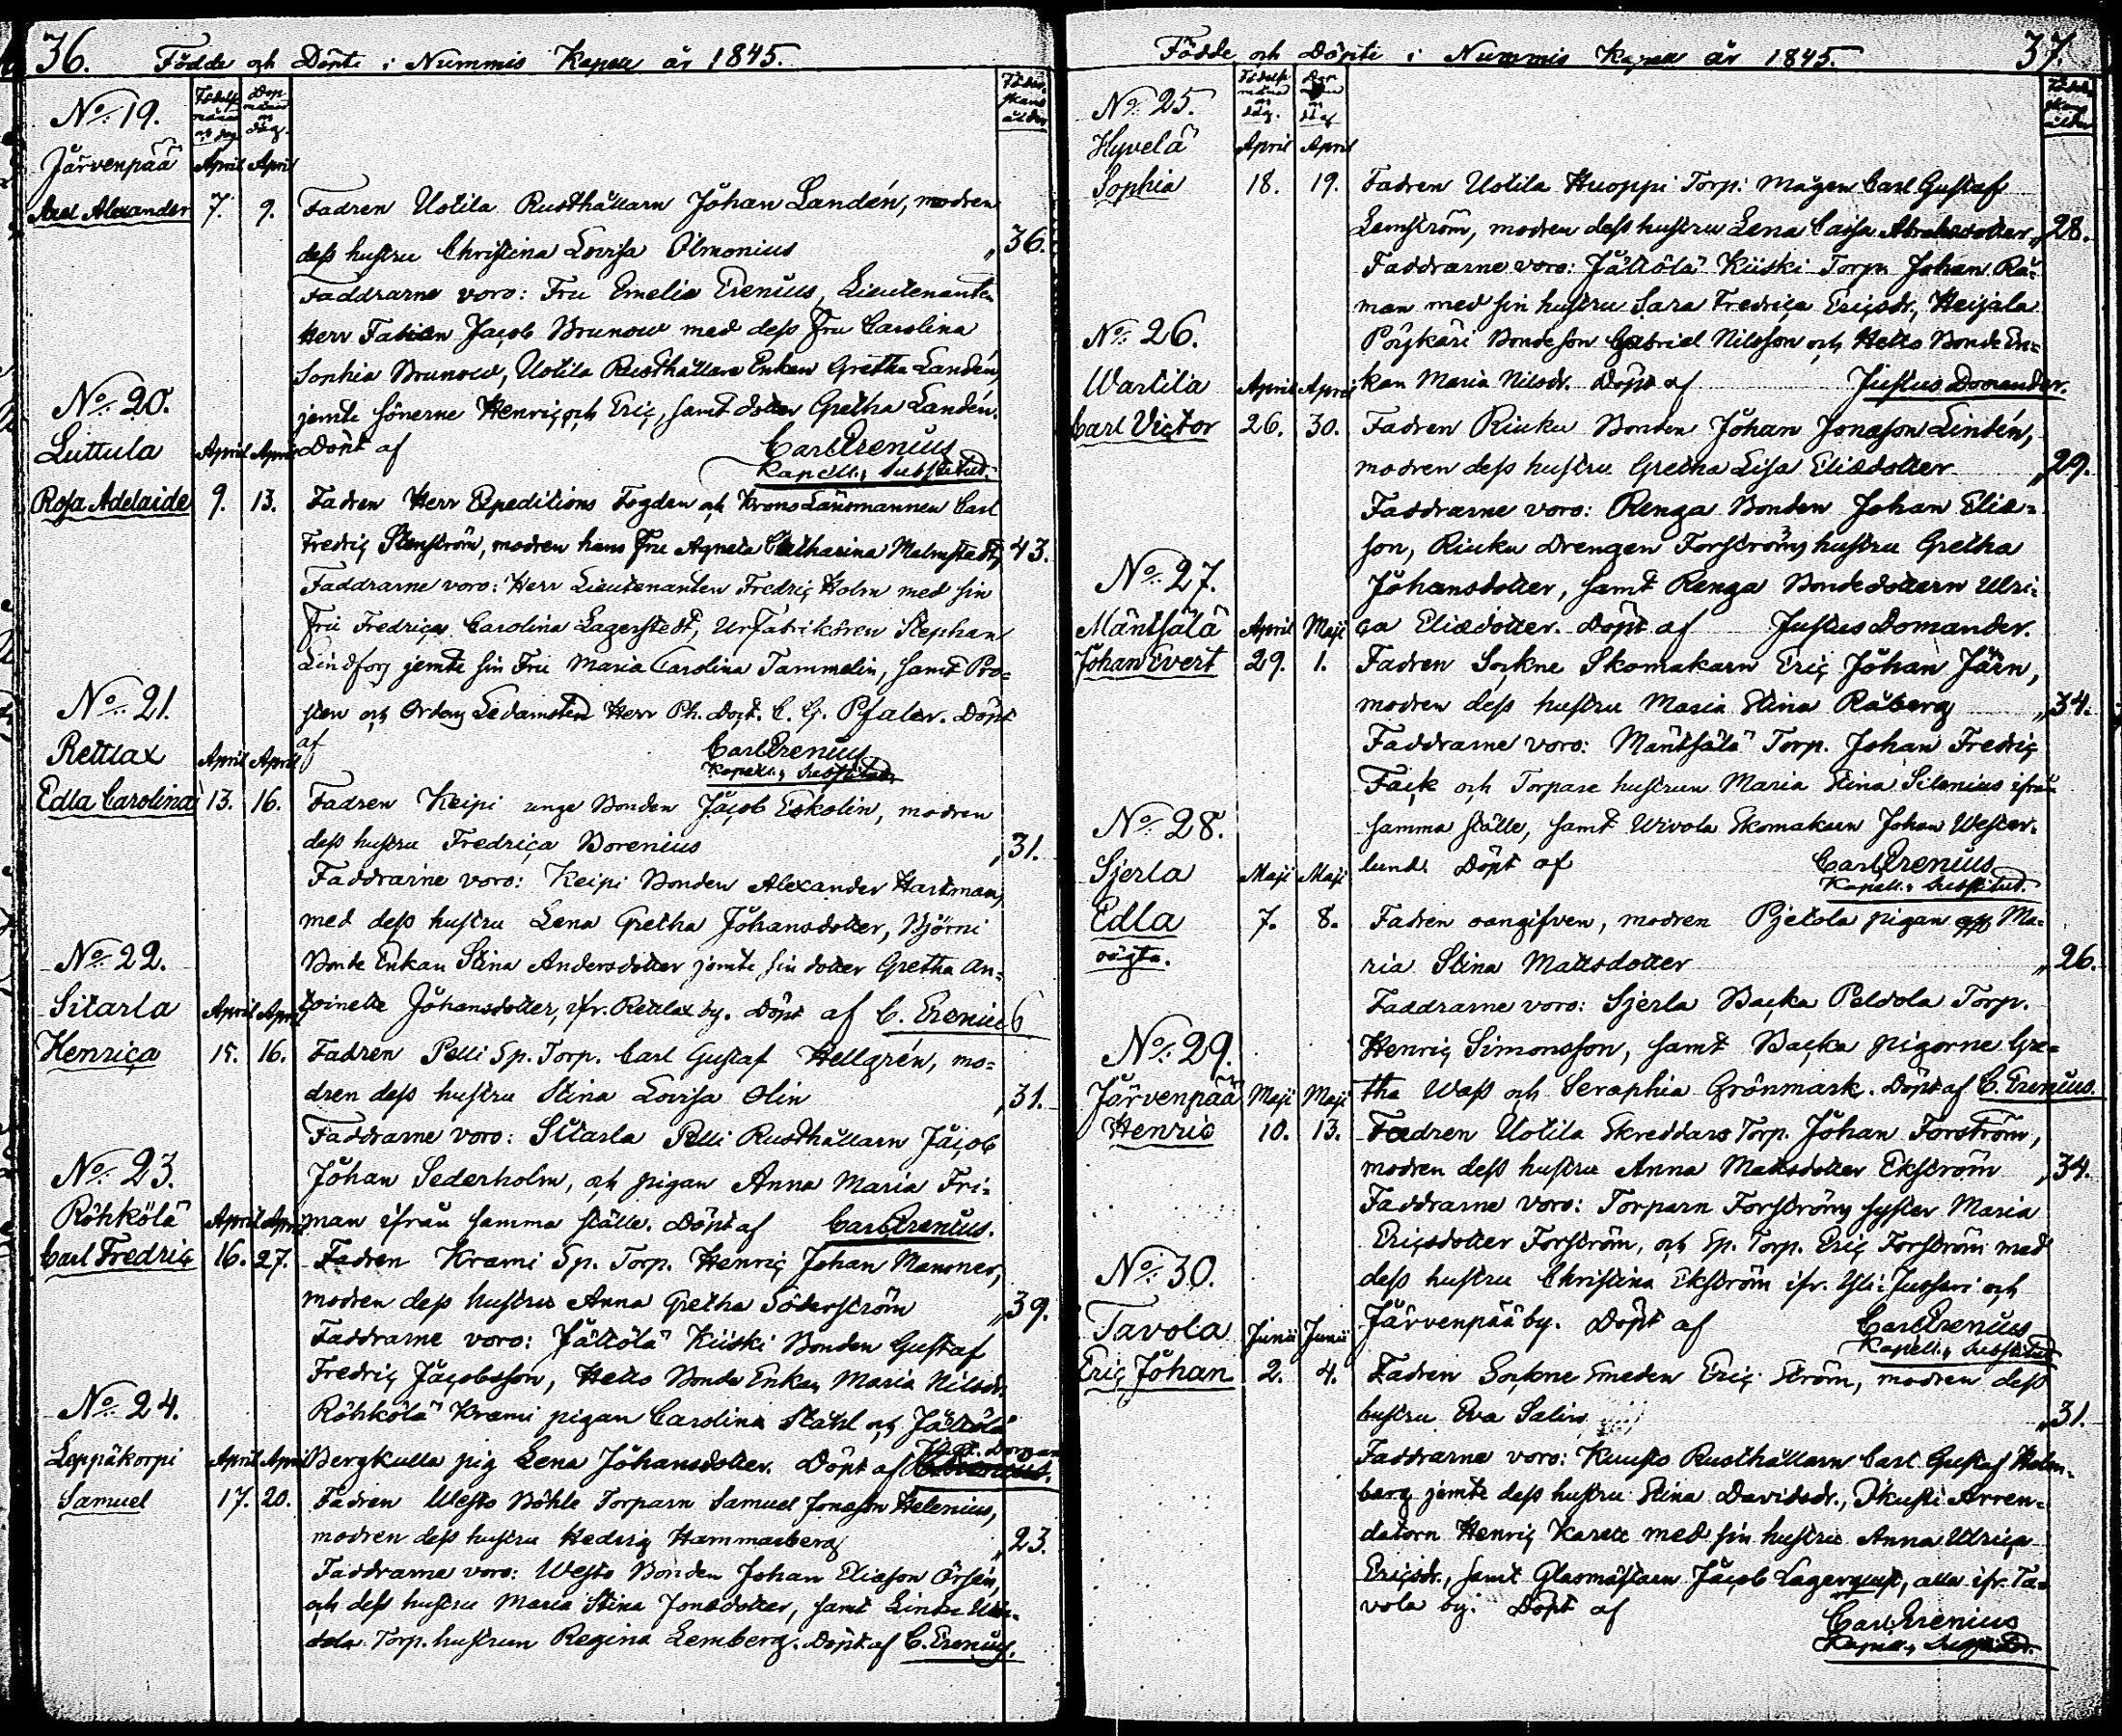 36. Födde och Döpte i Nummis Kapell år 1845.
Födelse månad och dag
Dop månad och dag.
Föder- skans ålder
No. 19.
Järvenpää April April
Axel Alexander 7. 9. Fadren Uotila Rusthållarn Johan Landén, modren
dess hustru Christina Lovisa Olmonius „36.
Faddrarne voro: Fru Emelia Erenius, Lieutenanten
Herr Fabian Jacob Brunow med dess Fru Carolina
Sophia Brunow, Uotila Rusthållare Enkan Gretha Landén,
No. 20.
jemte sönerne Henric och Eric, samt dotter Gretha Landén.
Luttula April April Döpt af Carl Erenius
Kapell.s Substitut.
Rosa Adelaide 9. 13. Fadren Herr Expeditions Fogden och Krons Länsmannen Carl
Fredric Stenström, modren hans Fru Agneta Catharina Malmstedt, 43.
Faddrarne voro: Herr Lieutenanten Fredric Holm med sin
Fru Fredrica Carolina Lagerstedt, Urfabrikören Stephan
Lindfors jemte sin Fru Maria Carolina Tammelin, samt Pro-
No. 21.
sten och Ordens Ledamoten Herr Ph. Doct. C. G. Pfaler. Döpt
Rettlax April April af Carl Erenius
Kapell.s Substitut.
Edla Carolina 13. 16. Fadren Keipi unge Bonden Jacob Eskolin, modren
dess hustru Fredrica Borenius „31.
Faddrarne voro: Keipi Bonden Alexander Hartman,
med dess hustru Lena Gretha Johansdotter, Björni
No. 22.
Bonde Enkan Stina Andersdotter jemte sin dotter Gretha An-
Sitarla April April toinette Johansdotter, ifr. Rettlax by. Döpt af C. Erenius
Henrica 15. 16. Fadren Pelli Sp. Torp. Carl Gustaf Hellgrén, mo-
dren dess hustru Stina Lovisa Olin „31.
Faddrarne voro: Sitarla Pelli Rusthållarn Jacob
No. 23.
Johan Sederholm, och pigan Anna Maria Fri-
Röhkölä April April man ifrån samma ställe. Döpt af Carl Erenius.
Carl Fredric 16. 27. Fadren Krami Sp. Torp. Henric Johan Manner,
modren dess hustru Anna Gretha Söderström „39.
Faddrarne voro: Jättölä Kiiski Bonden Gustaf
Fredric Jacobsson, Helts Bonde Enkan Maria Nilsdr,
No. 24.
Röhkölä Krami pigan Carolina Ståhl och Jättölä
Leppäkorpi April April Bergkulla pig Lena Johansdotter. Döpt af
Samuel 17. 20. Fadren Westo Böhle Torparn Samuel Jonasson Helenius,
modren dess hustru Hedvig Hammarberg „23.
Faddrarne voro: Westo Bonden Johan Eliasson Örsén,
och dess hustru Maria Stina Jonasdotter, samt
Torp. hustrun Regina Lemberg. Döpt af C. Erenius.
Födde och Döpte i Nummis Kapell år 1845. 37.
Födelse månad och dag.
Dop månad och dag
Föder- skans ålder
No. 25.
Hyvelä April April
Sophia 18. 19. Fadren Uotila Huoppi Torp. Mågen Carl Gustaf
Lemström, modren dess hustru Lena Caisa Abrahasdotter „28.
Faddrarne voro: Jättölä Kiiski Torp. Johan Rå-
man med sin hustru Sara Fredrica Ericsdr, Heijala
No. 26.
Pöykäri Bondeson Gabriel Nilsson och Helts Bonde En-
Wartila April April kan Maria Nilsdr. Döpt af Justus Domander.
Carl Victor 26. 30. Fadren Riuku Bonden Johan Jonasson Lindén,
modren dess hustru Gretha Lisa Eliædotter „29.
Faddrarne voro: Renga Bonden Johan Eliæ-
son, Riuku Drengen Forströms hustru Gretha
No. 27.
Johansdotter, samt Renga Bondedottern Ulri-
Mäntsälä April Maji ca Eliædotter. Döpt af Justus Domander.
Johan Evert 29. 1. Fadren Sockne Skomakarn Eric Johan Järn,
modren dess hustru Maria Stina Råberg „34.
Faddrarne voro: Mäntsälä Torp. Johan Fredric
Faick och Torpare hustrun Maria Stina Silenius ifrån
No. 28.
samma ställe, samt Wivola Skomakarn Johan Wester-
Sjerla Maji Maji lund. Döpt af Carl Erenius
Kapell.s Substitut.
Edla 7. 8. Fadren oangifven, modren Pjetola pigan Ma-
oägta.
ria Stina Mattsdotter „26.
Faddrarne voro: Sjerla Backa Peldola Torp.
No. 29.
Henric Simonsson, samt Backa pigorne Gre-
Järvenpää Maji Maji tha Wass och Seraphia Grönmark. Döpt af C. Erenius.
Henric 10. 13. Fadren Uotila Skreddars Torp. Johan Forström,
modren dess hustru Anna Mattsdotter Ekström „34.
Faddrarne voro: Torparn Forströms syster Maria
Ericsdotter Forström, och Sp. Torp. Eric Forström med
No. 30.
dess hustru Christina Ekström ifr. Yli-Jussari och
Tavola Junii Junii Järvenpää by. Döpt af Carl Erenius
Kapell.s Substitut
Eric Johan 2. 4. Fadren Sockne Smeden Eric Ström, modren dess
hustru Eva Salin „31.
Faddrarne voro: Kuusto Rusthållarn Carl Gustaf Holm-
berg jemte dess hustru Stina Davidsdr., Pikusti Arren-
datorn Henric Karell med sin hustru Anna Ulrica
Ericsdr., samt Glasmästarn Jacob Lagerqvist, alla ifr. Ta-
vola by. Döpt af Carl Erenius
Kapell.s Substitut.